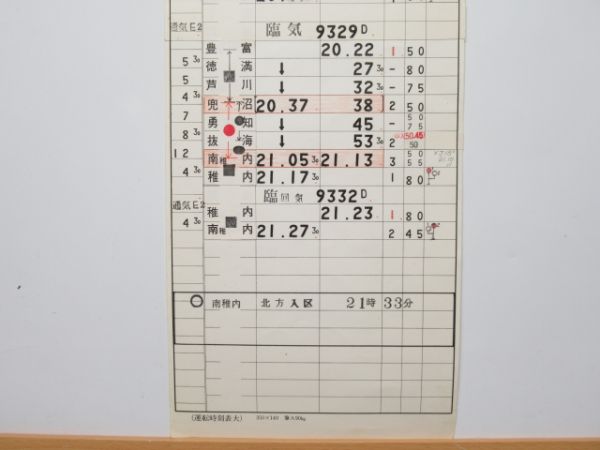 通気E2 臨気 9329D
豊富 20.22 1 50
5 30
徳満 ↓ 27 30 - 80
5
芦川 ↓ 32 30 - 75
4 30
兜沼 20.37 38 2 50
7
勇知 ↓ 45 - 50 75
8 30
抜海 ↓ 53 30 2 50
12
南稚内 21.05 30 21.13 3 50 55
4 30
稚内 21.17 30 1 80
通気E2 臨回気 9332D
稚内 21.23 1 80
4 30
南稚内 21.27 30 2 45
南稚内 北方入区 21時33分
(運転時刻表大)